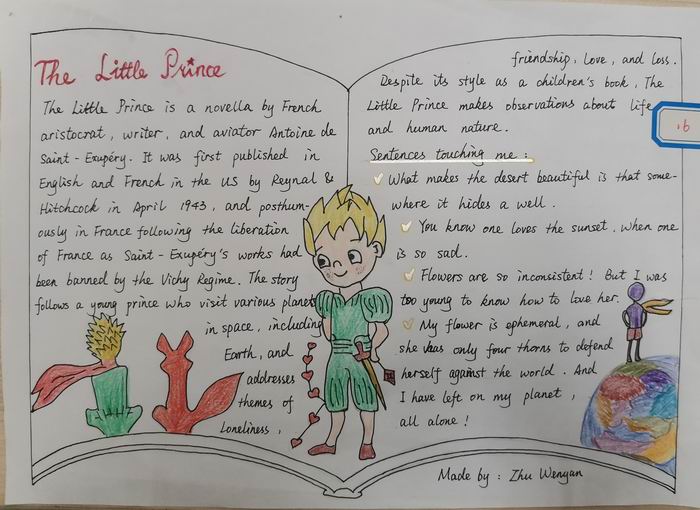 The Little Prince
The Little Prince is a novella by French
aristocrat, writer, and aviator Antoine de
Saint-Exupéry. It was first published in
English and French in the US by Reynal &
Hitchcock in April 1943, and posthum-
ously in France following the liberation
of France as Saint-Exupéry's works had
been banned by the Vichy Regime. The story
follows a young prince who visit various planets
in space, including
Earth, and
addresses
themes of
Loneliness,
friendship, love, and loss.
Despite its style as a children's book, The
Little Prince makes observations about life
and human nature.
Sentences touching me:
What makes the desert beautiful is that some-
where it hides a well.
You know one loves the sunset, when one
is so sad.
Flowers are so inconsistent! But I was
too young to know how to love her.
My flower is ephemeral, and
she has only four thorns to defend
herself against the world. And
I have left on my planet,
all alone!
Made by: Zhu Wenyan